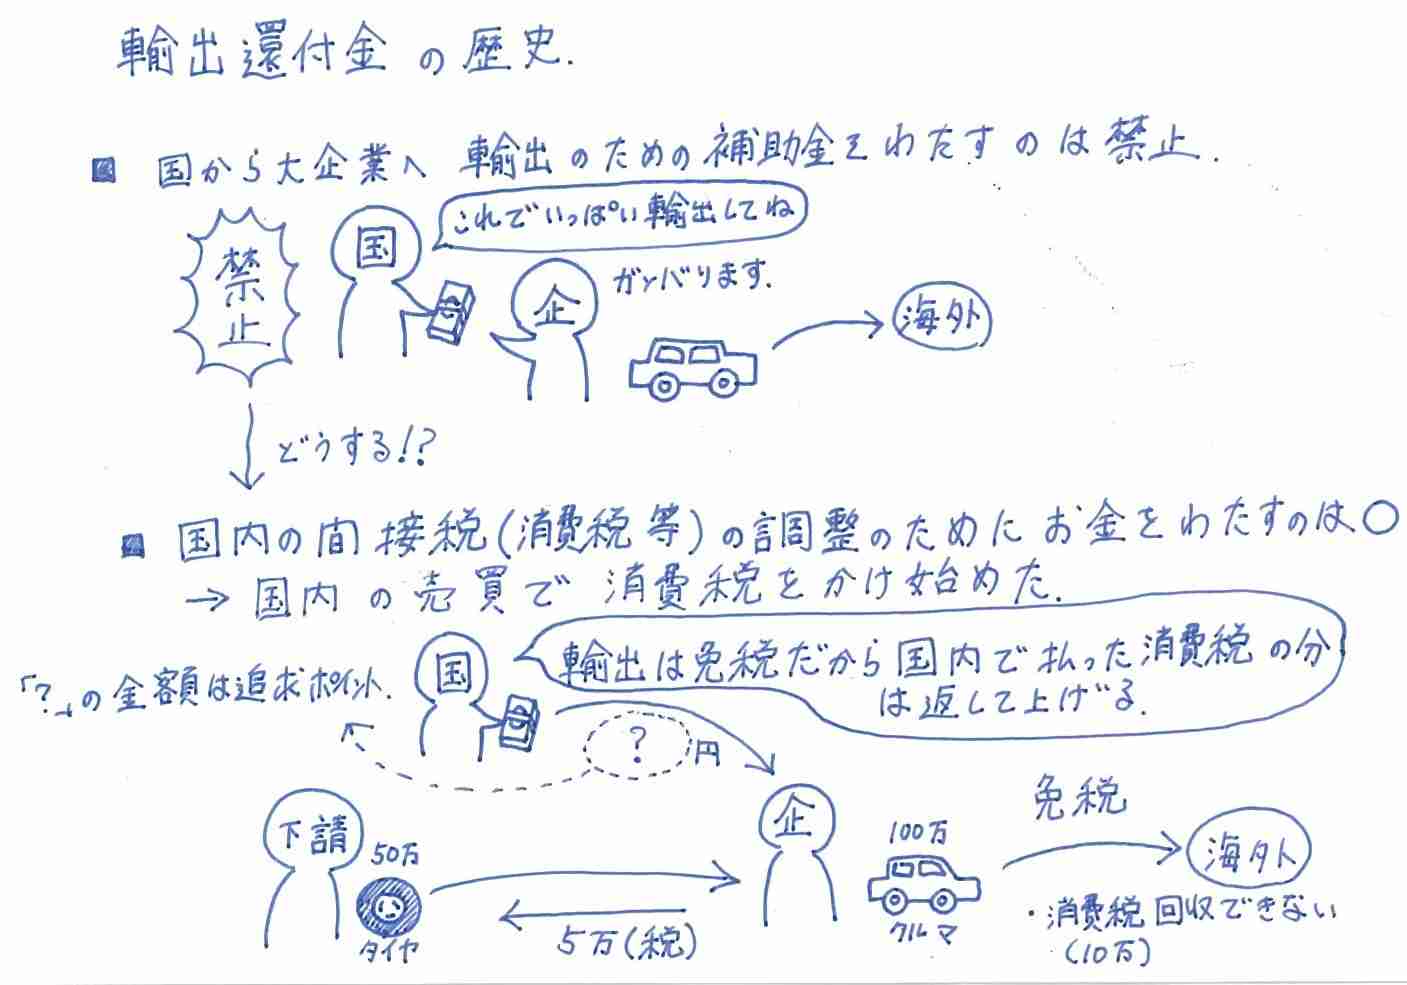 輸出還付金の歴史.
■ 国から大企業へ 輸出のための補助金をわたすのは禁止.
禁止
国
これでいっぱい輸出してね
企
ガンバります.
海外
どうする!?
■ 国内の間接税(消費税等)の調整のためにお金をわたすのは〇
→ 国内の売買で消費税をかけ始めた.
国
輸出は免税だから国内で払った消費税の分
は返して上げる.
「?」の金額は追求ポイント.
? 円
下請
50万
タイヤ
5万(税)
企
100万
クルマ
免税
海外
・消費税回収できない
(10万)